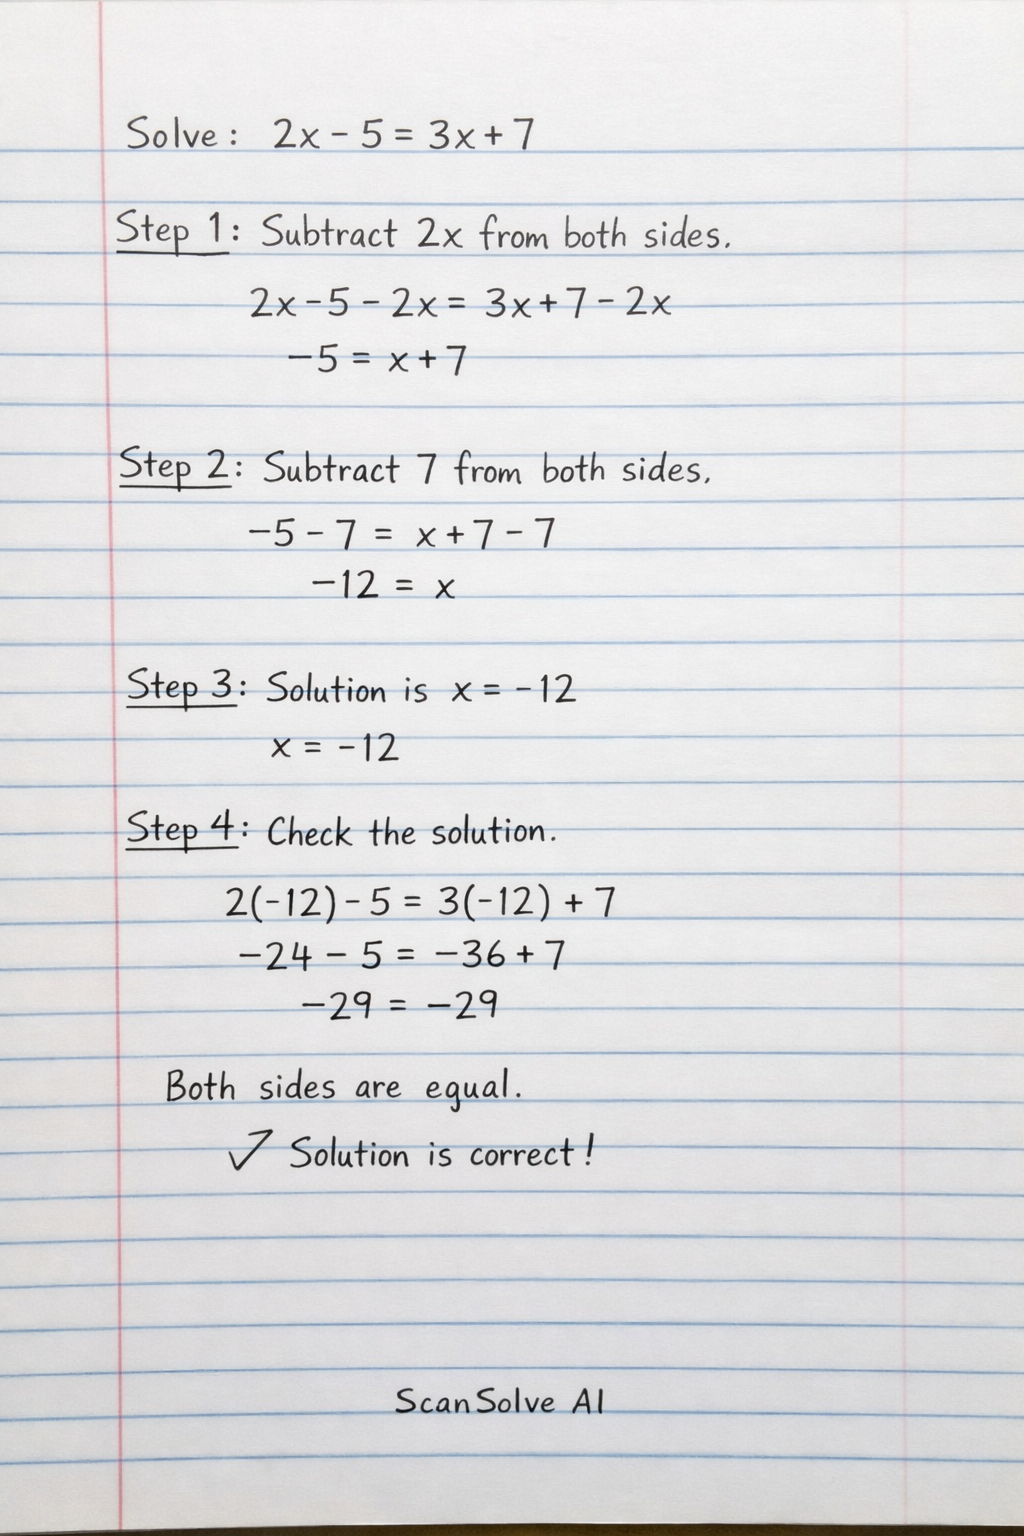 Solve: 2x - 5 = 3x + 7
Step 1: Subtract 2x from both sides.
2x - 5 - 2x = 3x + 7 - 2x
-5 = x + 7
Step 2: Subtract 7 from both sides.
-5 - 7 = x + 7 - 7
-12 = x
Step 3: Solution is x = -12
x = -12
Step 4: Check the solution.
2(-12) - 5 = 3(-12) + 7
-24 - 5 = -36 + 7
-29 = -29
Both sides are equal.
✓ Solution is correct!
ScanSolve AI